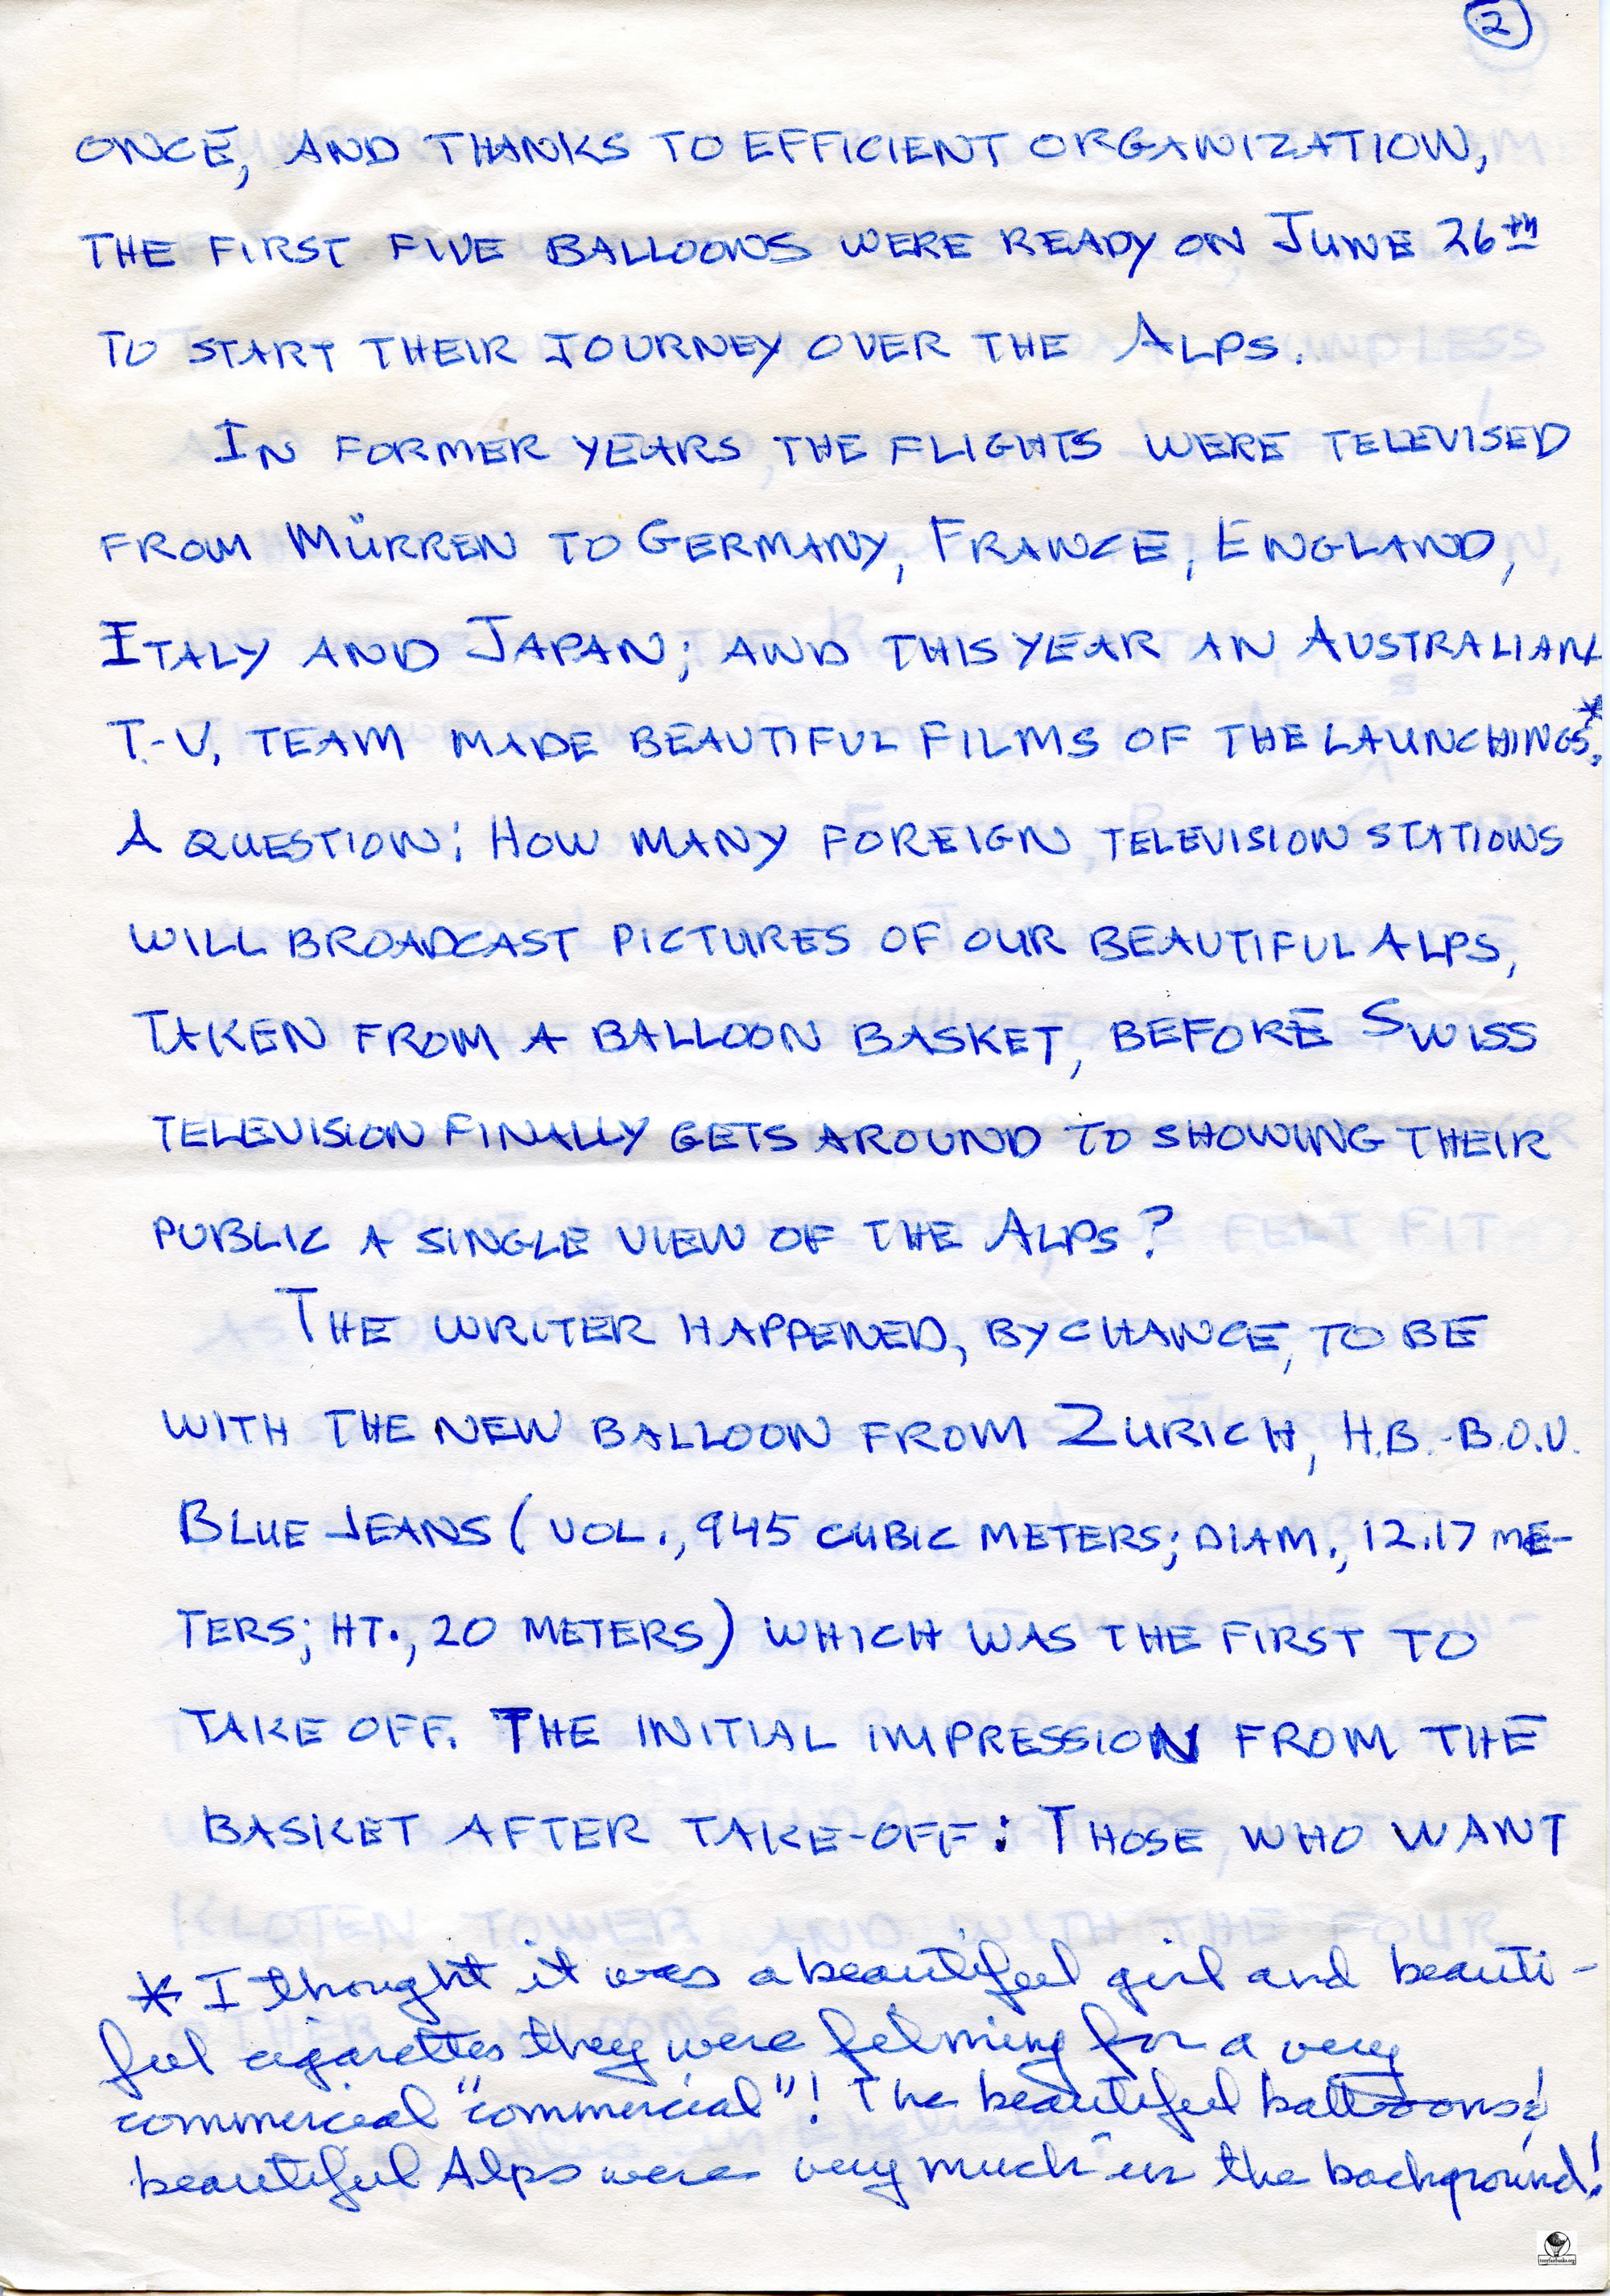 2
ONCE, AND THANKS TO EFFICIENT ORGANIZATION,
THE FIRST FIVE BALLOONS WERE READY ON JUNE 26th
TO START THEIR JOURNEY OVER THE ALPS.
IN FORMER YEARS THE FLIGHTS WERE TELEVISED
FROM MÜRREN TO GERMANY, FRANCE, ENGLAND,
ITALY AND JAPAN; AND THIS YEAR AN AUSTRALIAN
T.-V. TEAM MADE BEAUTIFUL FILMS OF THE LAUNCHINGS*.
A QUESTION: HOW MANY FOREIGN TELEVISION STATIONS
WILL BROADCAST PICTURES OF OUR BEAUTIFUL ALPS,
TAKEN FROM A BALLOON BASKET, BEFORE SWISS
TELEVISION FINALLY GETS AROUND TO SHOWING THEIR
PUBLIC A SINGLE VIEW OF THE ALPS?
THE WRITER HAPPENED, BY CHANCE, TO BE
WITH THE NEW BALLOON FROM ZURICH, H.B.-B.O.V.
BLUE JEANS (VOL., 945 CUBIC METERS; DIAM., 12.17 ME-
TERS; HT., 20 METERS) WHICH WAS THE FIRST TO
TAKE OFF. THE INITIAL IMPRESSION FROM THE
BASKET AFTER TAKE-OFF: THOSE WHO WANT
* I thought it was a beautiful girl and beauti-
ful cigarettes they were filming for a very
commercial "commercial"! The beautiful balloons &
beautiful Alps were very much in the background!